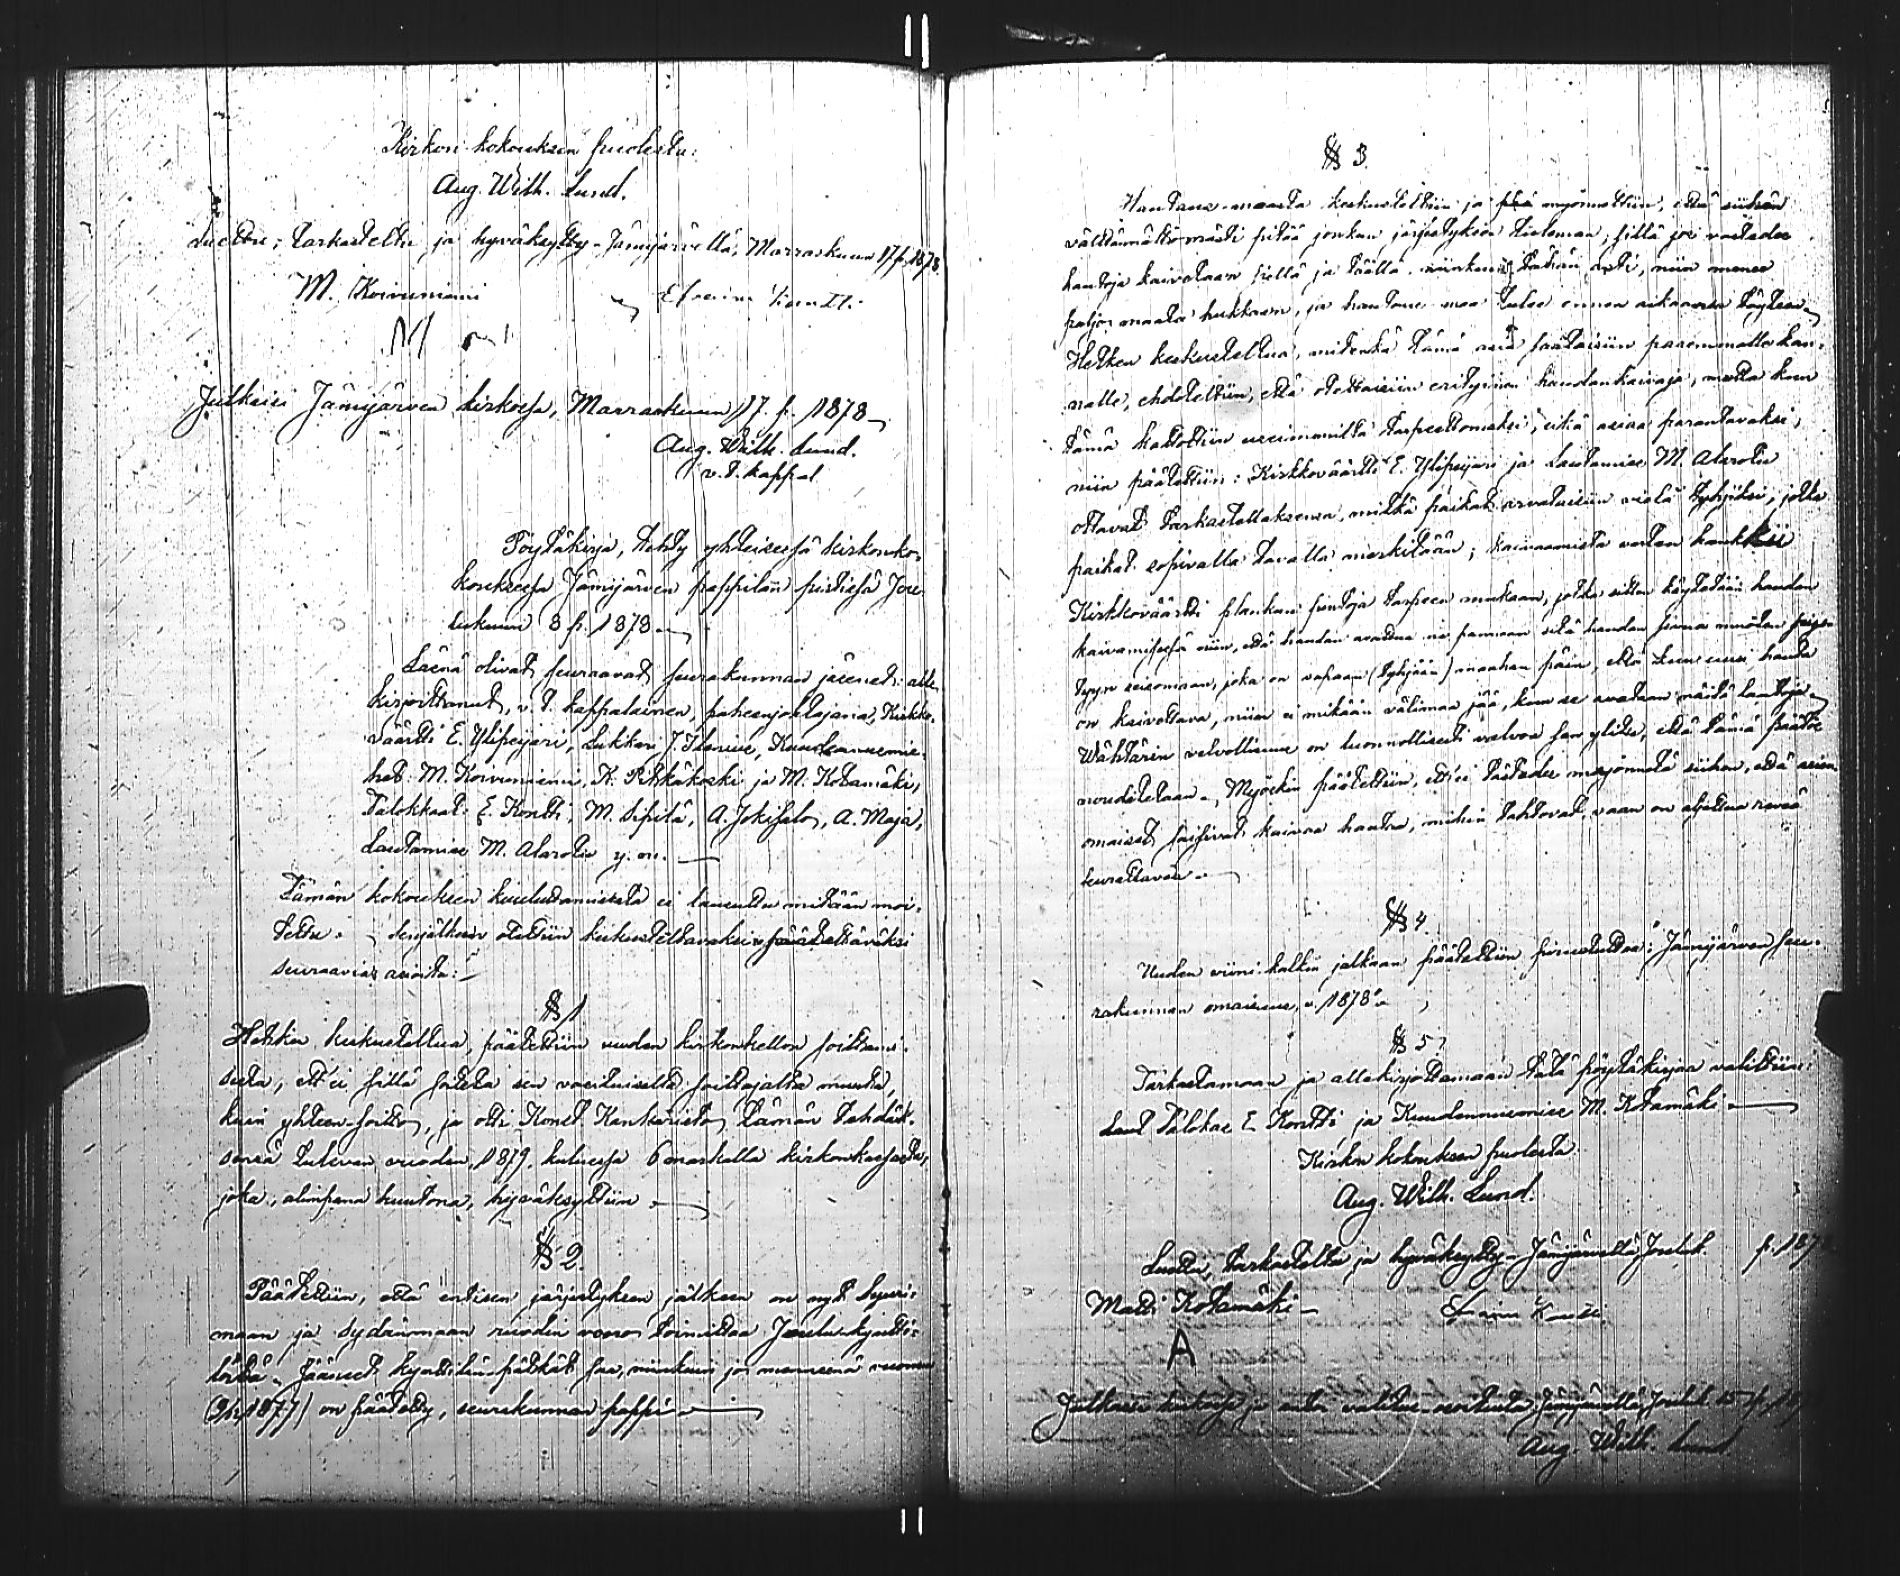 Kirkon kokouksen puolesta:
Aug. Wilh. Lund.
Luettu, tarkastettu ja hyväksytty Jämijärvellä, Marraskuun 17 p. 1878
M. Koivuniemi
Efraim Kontti.
Julkaisi Jämijärven kirkossa, Marraskuun 17. p. 1878
Aug. Wilh. Lund.
v. t. kappal
Pöytäkirja, tehty yhteisessä kirkonko-
kouksessa Jämijärven pappilan pirtissä Jou-
lukuun 8 p. 1878
Läsnä olivat seuraavat seurakunnan jäsenet: alle-
kirjoittanut, v. t. kappalainen, puheenjohtajana, Kirkko-
väärtti E. Ylipeijari, Lukkari J. Ilenius, Kuudennusmie-
het: M. Koivuniemi, K. Pitkäkoski ja M. Kotamäki,
Talokkaat: E. Kontti, M. Sipilä, A. Jokisalo, A. Maja,
Lautamies M. Alarotu y. m.
Tämän kokouksen kuuluttamisesta ei lausuttu mitään moi-
tetta. Senjälkeen otettiin keskusteltavaksi ja päätettäväksi
seuraavia asioita:
§ 1
Hetken keskusteltua, päätettiin uuden kirkonkellon soittami-
sesta, ett'ei sillä soiteta sen varsinaiselta soittajalta muuta,
kuin yhteen-soitto, ja otti Konst. Kankaristo tämän tehdäk-
sensä tulevan vuoden, 1879, kuluessa 6 markalla kirkonkassasta,
joka, alimpana huutona, hyväksyttiin
§ 2.
Päätettiin, että entisen järjestyksen jälkeen on nyt
maan ja Sydänmaan ruodin vuoro toimittaa Joulu-kyntti-
löitä. Jääneet kynttilänpätkät saa, niinkuin jo menneenä vuonna
1877) on päätetty, seurakunnan pappi
§ 3.
Hautaus-maasta keskusteltiin ja myönnettiin, että siihen
välttämättömästi pitää jonkun järjestyksen tuleman, sillä jos vastedes
hautoja kaivetaan siellä ja täällä niinkuin tähän asti, niin menee
paljo maata hukkaan, ja hautaus-maa tulee ennen aikaansa täyteen
Hetken keskusteltua, mitenkä tämä asia saataisiin paremmalle kan-
nalle, ehdoteltiin, että otettaisiin erityinen haudankaivaja, mutta kun
tämä katsottiin useimmilta tarpeettomaksi, eikä asiaa parantavaksi,
niin päätettiin: Kirkkoväärtti E. Ylipeijari ja Lautamies M. Alarotu
ottavat tarkastellaksensa, mitkä paikat arvataisiin vielä tyhjiksi, jotka
paikat sopivalla tavalla merkitään; kaivaamista varten hankkii
Kirkkoväärtti plankun puntoja tarpeen mukaan, jotka sitten käytetään haudan
kaivamisessa niin, että haudan avattua ne pannaan sitä haudan sivua myöten
tyyn seisomaan, joka on vapaan (tyhjään) maahan päin, että kun uusi hauta
on kaivettava, niin ei mikään välimaa jää, kun se avataan näitä lautoja
Wahtärin velvollisuus on luonnollisesti valvoa sen ylitse, että tämä päätös
noudatetaan. Myöskin päätettiin, ett'ei vastedes myönnetä siihen, että asian
omaiset saisivat kaivaa hautaa, mihin tahtovat, vaan on aljettua riviä
seurattava.
§ 4
Uuden viini-kalkin jalkaan päätettiin piirustuttaa: "Jämijärven seu-
rakunnan omaisuus, v. 1878"
§ 5
Tarkastamaan ja allekirjottamaan tätä pöytäkirjaa valittiin:
Talokas E. Kontti ja Kuudennusmies M. Kotamäki
Kirkon kokouksen puolesta
Aug. Wilh. Lund.
Luettu, tarkastettu ja hyväksytty Jämijärvellä Jouluk. p. 187
Matti Kotamäki
Efraim Kontti.
A
Julkaisi kirkossa ja antoi valitus-osoitusta Jämijärvellä, Jouluk. 15 p. 187
Aug. Wilh. Lund